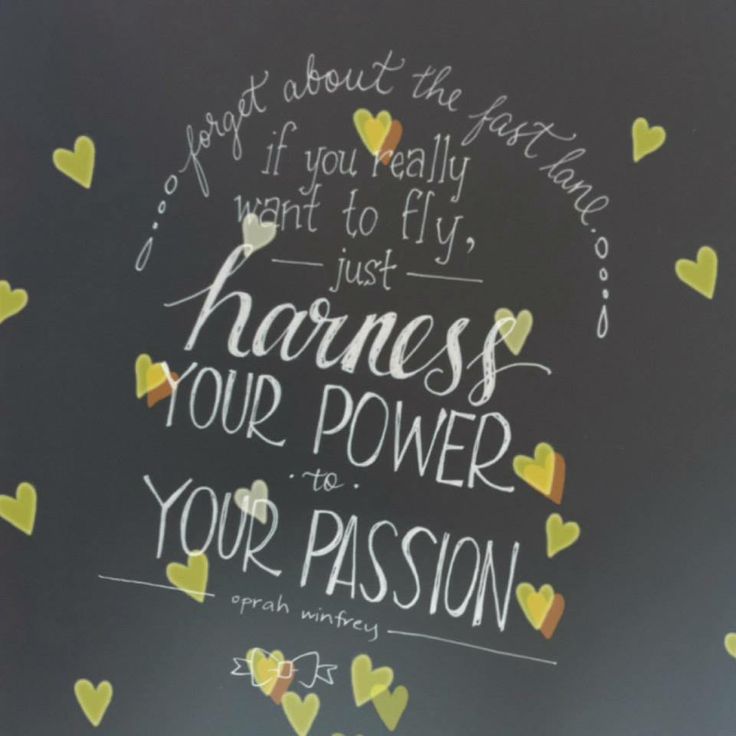 forget about the fast lane.
if you really
want to fly,
just
harness
YOUR POWER
to
YOUR PASSION
oprah winfrey